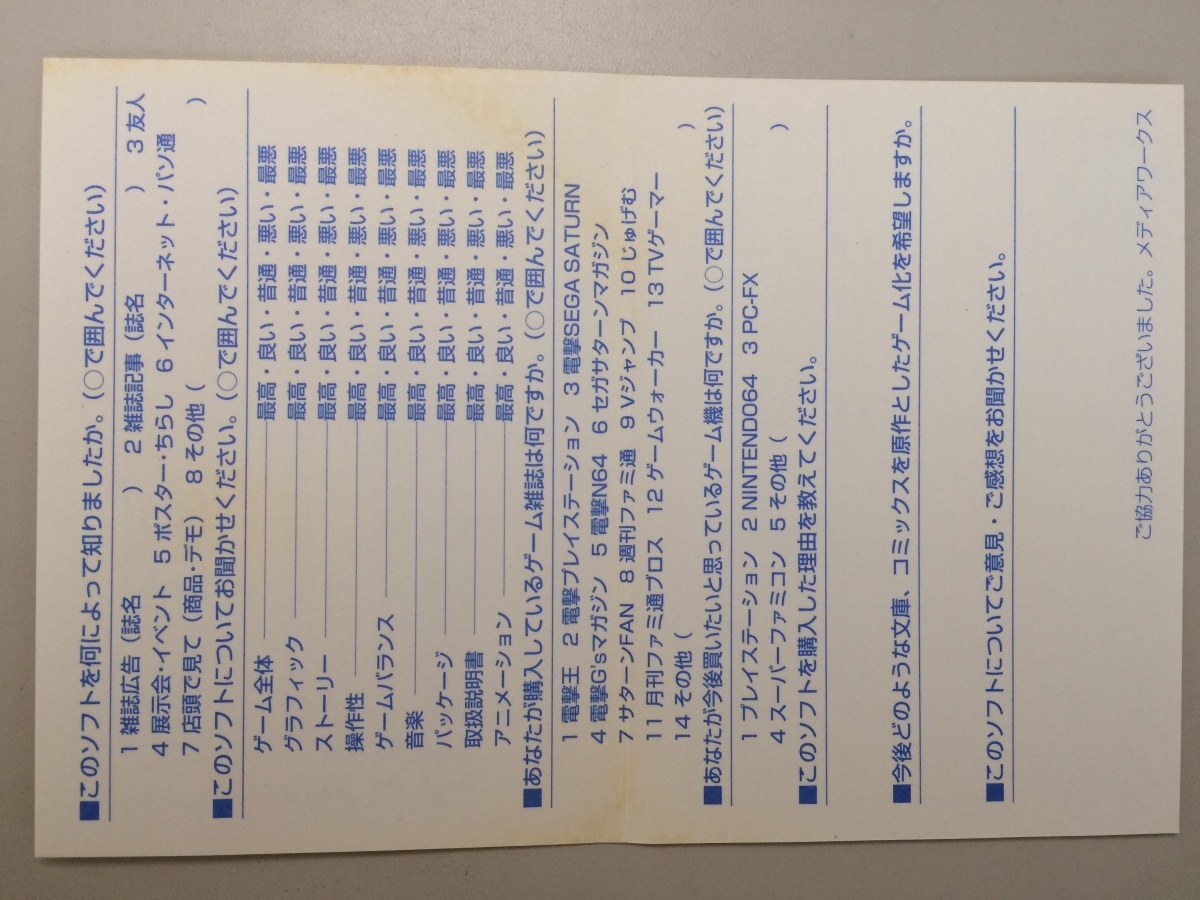 ■このソフトを何によって知りましたか。(○で囲んでください)
1 雑誌広告(誌名　　　　) 2 雑誌記事(誌名　　　　) 3 友人
4 展示会・イベント 5 ポスター・ちらし 6 インターネット・パソ通
7 店頭で見て(商品・デモ) 8 その他(　　　　)
■このソフトについてお聞かせください。(○で囲んでください)
ゲーム全体――最高・良い・普通・悪い・最悪
グラフィック――最高・良い・普通・悪い・最悪
ストーリー――最高・良い・普通・悪い・最悪
操作性――最高・良い・普通・悪い・最悪
ゲームバランス――最高・良い・普通・悪い・最悪
音楽――最高・良い・普通・悪い・最悪
パッケージ――最高・良い・普通・悪い・最悪
取扱説明書――最高・良い・普通・悪い・最悪
アニメーション――最高・良い・普通・悪い・最悪
■あなたが購入しているゲーム雑誌は何ですか。(○で囲んでください)
1 電撃王 2 電撃プレイステーション 3 電撃SEGA SATURN
4 電撃G'sマガジン 5 電撃N64 6 セガサターンマガジン
7 サターンFAN 8 週刊ファミ通 9 Vジャンプ 10 じゅげむ
11 月刊ファミ通ブロス 12 ゲームウォーカー 13 TVゲーマー
14 その他(　　　　)
■あなたが今後買いたいと思っているゲーム機は何ですか。(○で囲んでください)
1 プレイステーション 2 NINTENDO64 3 PC-FX
4 スーパーファミコン 5 その他(　　　　)
■このソフトを購入した理由を教えてください。
■今後どのような文庫、コミックスを原作としたゲーム化を希望しますか。
■このソフトについてご意見・ご感想をお聞かせください。
ご協力ありがとうございました。メディアワークス